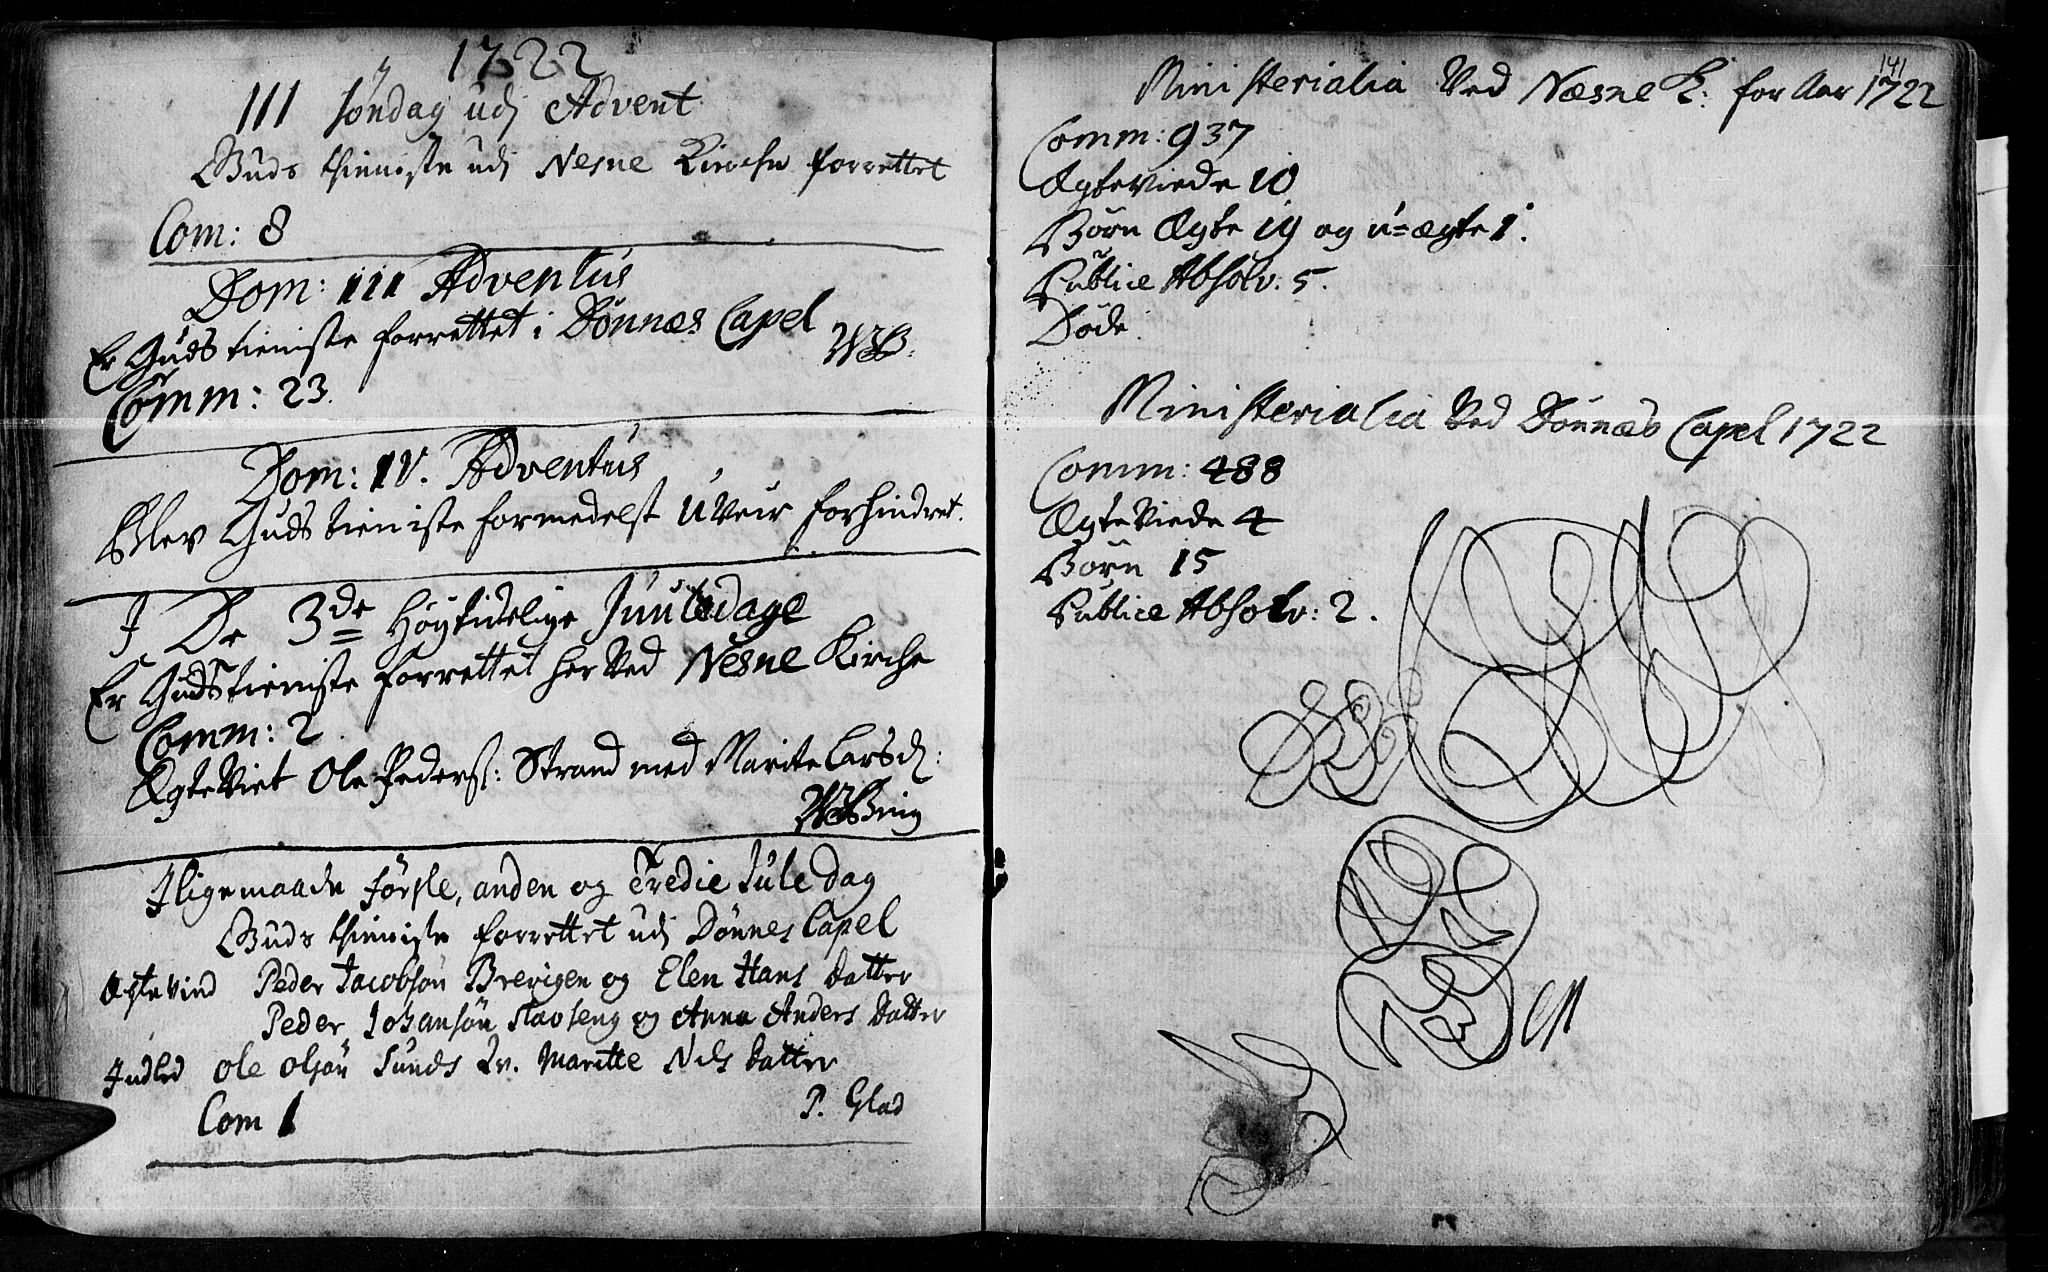 1722
III Söndag udj Advent
Guds thieniste udj Nesne Kirche forrettet
Com: 8
Dom: III Adventus
Er Guds tieniste forrettet i Dönnæs Capel
Comm: 23.
Dom: IV. Adventus
Blev Guds tieniste formedelst Uveir forhindret.
I De 3de Høytidelige Juuledage
Er Guds tieniste forrettet her Ved Nesne Kirche
Comm: 2.
Ægte Viet Ole Peders: Strand med Marite Larsd:
Iligemaade første, anden og Tredie Jule Dag
Guds thieniste forrettet udj Dönnes Capel
Ægtevied Peder Jacobsøn Breeigen og Elen Hans datter
Peder Johansøn Slavseng og Anna Anders Datter
Indled Ole Olsøn Sunds Qv. Maritte Nils datter
Com 1
P. Glad
141
Ministerialia Ved Næsne K: for Aar 1722
Comm: 937
Ægteviede 10
Börn Ægte 19 og u=ægte 1.
Publice Absolv: 5.
Döde.
Ministerialia Ved Dönnæs Capel 1722
Comm: 488
Ægte Viede 4
Börn 15
Publice Absolv: 2.